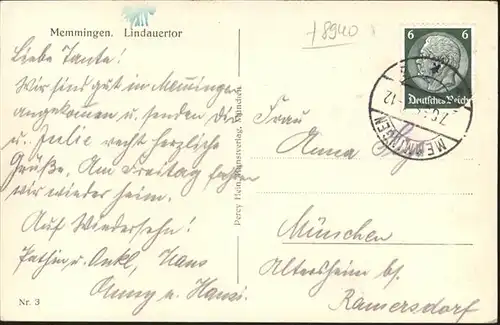 Memmingen. Lindauertor
+8940
6 6
Deutsches Reich
MEMMINGEN
Liebe Tante!
Wir sind gut in Memmingen
angekommen u. senden dir
u. Julie recht herzliche
Grüße. Am Freitag fahren
wir wieder heim.
Auf Wiedersehn!
Pathin u. Onkl, Hans
Anny u. Hansi.
Percy Hein, Kunstverlag, München.
Frau
Anna
München
Altersheim bf.
Ramersdorf
Nr. 3